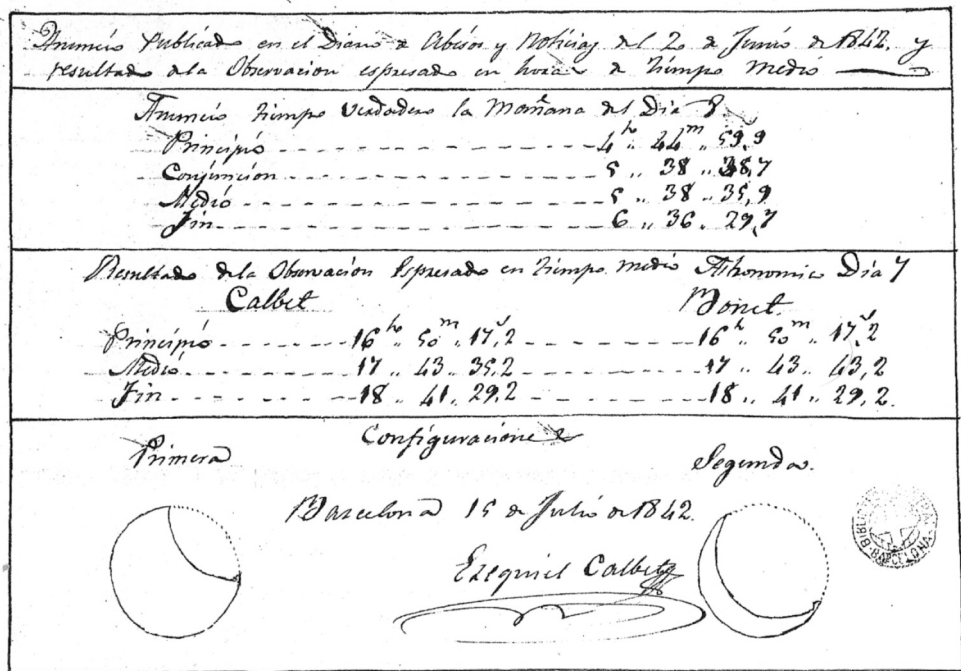 Anuncio Publicado en el Diario de Abisos y Noticias del 20 de Junio de 1842. y
resultado de la Observacion espresado en horas de tiempo medio
Anuncio tiempo Verdadero la Mañana del Dia 8
Principio 4h 44m 59,9
Conjuncion 5 38 38,7
Medio 5 38 35,9
Fin 6 36 29,7
Resultado de la Observacion Espresado en tiempo medio Astronomico Dia 7
Calbet Bonet
Principio 16h 50m 17,2 16h 50m 17,2
Medio 17 43 35,2 17 43 43,2
Fin 18 41 29,2 18 41 29,2
Configuraciones
Primera Segunda.
Barcelona 15 de Julio de 1842.
Ezequiel Calbet
BARCELONA